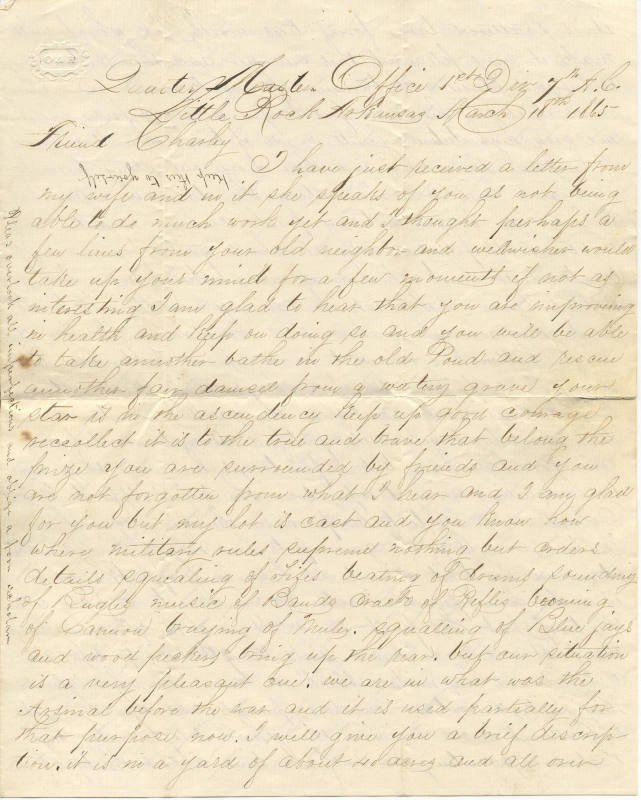 Quarter Master Office 1st Div 7th A.C.
Little Rock Arkansas March 16th 1865
Friend Charley
Keep this to yourself
I have just recieved a letter from
my wife and in it she speaks of you as not being
able to do much work yet and I thought perhaps a
few lines from your old neighbor and wellwisher would
take up your mind for a few moments if not as
interesting I am glad to hear that you are improving
in health and keep on doing so and you will be able
to take annother bathe in the old Pond and rescue
annother fair damsel from a watery grave your
star is in the ascendency keep up good courage
reccollect it is to the true and brave that belong the
prize you are surrounded by friends and you
are not forgotten from what I hear and I am glad
for you but my lot is cast and you know how
where military rules supreme nothing but orders
details squealing of Fifes beating of drums sounding
of Bugles music of Bands crack of Rifles booming
of Cannon braying of Mules. squalling of Blue jays
and wood peckers bring up the rear. but our situation
is a very pleasant one. we are in what was the
Arsinal before the war and it is used partially for
that purpose now. I will give you a brief discrip
tion. it is in a yard of about 40 acres and all over
Pleas overlook all imperfections and oblige a poor